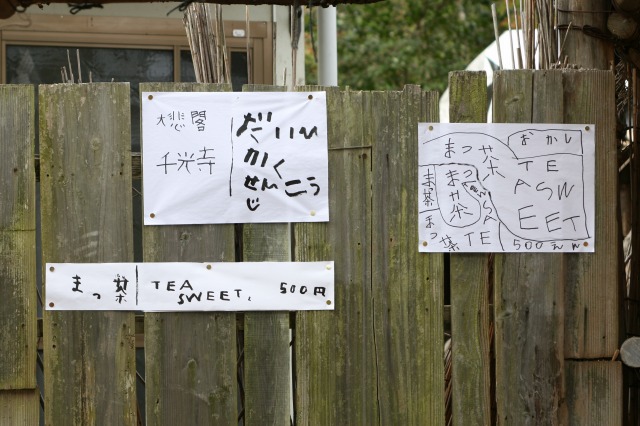 大悲閣
千光寺
だいひ
かく
せんこう
じ
まっ茶 TEA
SWEET, 500円
まっ茶
おかし
TEA
SWEET
500えん
まっ茶
抹茶
まっ茶 TEA